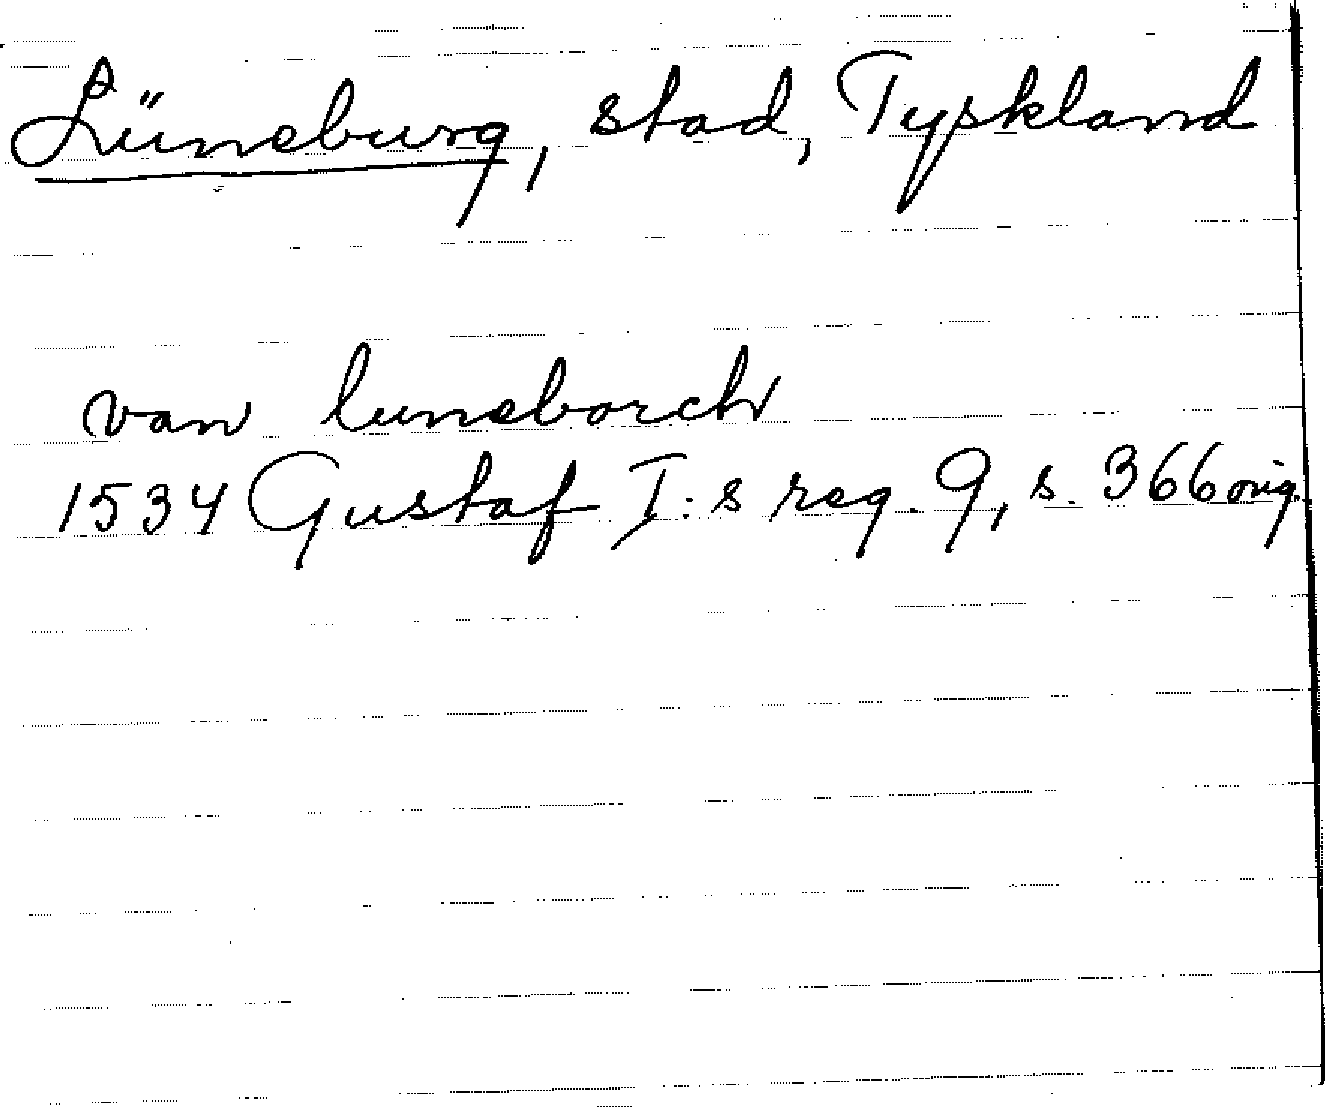 Lüneburg, stad, Tyskland
van luneborch
1534 Gustaf I:s reg. 9, s. 366 orig.